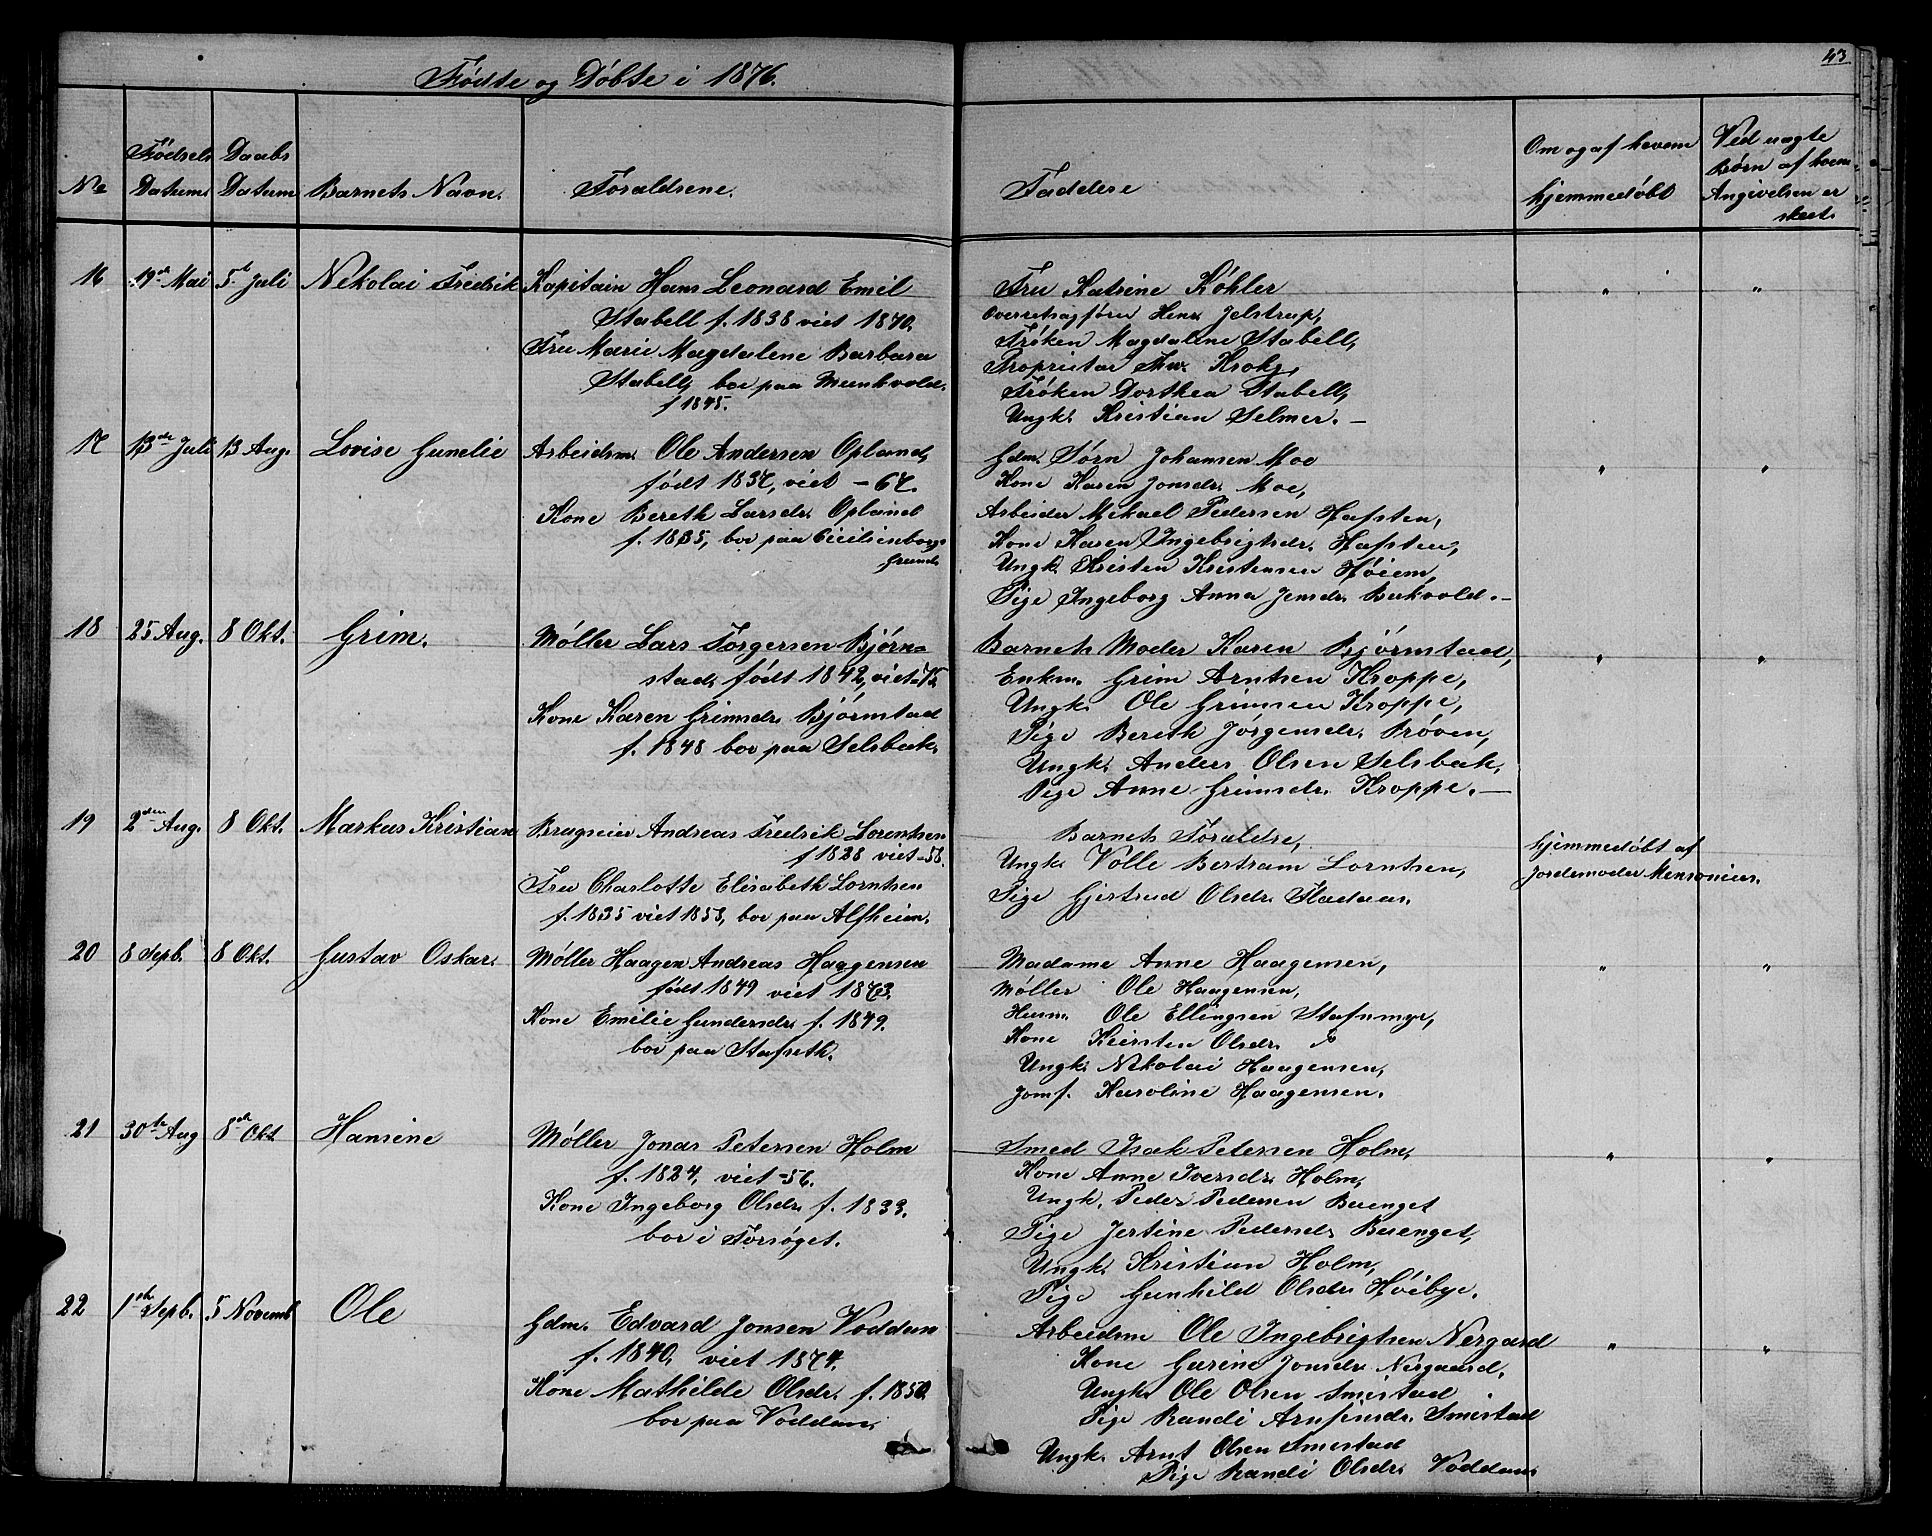 43
Fødte og Døbte i 1876.
No
Fødsels Datum.
Daabs Datum
Barnets Navn.
Forældrene.
Faddere
Om og af hvem hjemmedøbt
Ved uægte Børn af hvem Angivelsen er skeet.
16 19de Mai 5te Juli Nikolai Fredrik
Kapitain Hans Leonard Emil
Stabell f. 1838 viet 1870.
Fru Marie Magdalene Barbara
Stabell, bor paa Munkvold.
f 1845.
Fru Katrine Köhler
Overretsagfører Henr. Jelstrup,
Frøken Magdaline Stabell,
Proprietær Krohg,
Frøken Dorthea Stabell,
Ungk. Kristian Selmer. —
" "
17 13de Juli 13 Aug. Lovise Gunelie
Arbeidsm. Ole Andersen Opland,
født 1837, viet - 67.
Kone Bereth Larsdr. Opland
f. 1835, bor paa Cecilienborg
Grund.
Gdm. Sørn Johansen Moe
Kone Karen Jonsdr. Moe,
Arbeider Mikael Pedersen Hafsten,
Kone Karen Ingebrigtsdr. Hafsten,
Ungk. Kristen Kristensen Høiem,
Pige Ingeborg Anna Jensdr. Bekvold. —
" "
18 25 Aug. 8 Okt. Grim.
Møller Lars Torgersen Bjørn=
stad, født 1842, viet -75.
Kone Karen Grimsdr. Bjørnstad
f. 1848 bor paa Selsbak.
Barnets Moder Karen Bjørnstad,
Enkm. Grim Arntsen Kroppe,
Ungk. Ole Grimsen Kroppe,
Pige Bereth Jørgensdr. Prøven,
Ungk. Anders Olsen Selsbak,
Pige Anne Grimsdr. Kroppe. —
" "
19 2den Aug. 8 Okt. Markus Kristian
Brugseier Andreas Fredrik Lorentsen
f 1828 viet -58.
Fru Charlotte Elisabeth Lorntsen
f. 1835 viet 1858, bor paa Alfheim.
Barnets Forældre,
Ungk. Volle Bertram Lorntsen,
Pige Gjertrud Olsdr. Fladaas.
hjemmedøbt af
Jordemoder
20 8 Sepb. 8 Okt. Gustav Oskar.
Møller Haagen Andreas Haagensen
født 1849 viet 1873.
Kone Emilie Gundersdr. f. 1849.
bor paa Stafseth.
Madame Anne Haagensen,
Møller Ole Haagensen,
Husm. Ole Ellingsen Stafnmyr,
Kone Kiersten Olsdr. "
Ungk. Nikolai Haagensen,
Jomf. Karoline Haagensen.
" "
21 30te Aug 8de Okt. Hansine
Møller Jonas Petersen Holm
f. 1824, viet -56.
Kone Ingeborg Olsdr. f. 1833.
bor i Forsøget.
Smed Isak Petersen Holm,
Kone Anne Iversdr. Holm,
Ungk. Peder Pedersen Buenget
Pige Jertine Pedersdr. Buenget,
Ungk. Kristian Holm,
Pige Gunhild Olsdr. Høibye.
" "
22 1ste Sepb. 5 Novemb. Ole
Gdm. Edvard Jonsen Voddan
f. 1840, viet 1874.
Kone Mathilde Olsdr. f. 1850.
bor paa Voddan.
Arbeidsm Ole Ingebrigtsen Nergaard
Kone Gurine Jonsdr. Nergaard,
Ungk. Ole Olsen Smistad
Pige Randi Arnfinsdr. Smistad
Ungk. Arnt Olsen Smistad
Pige Randi Olsdr. Voddan.
" "